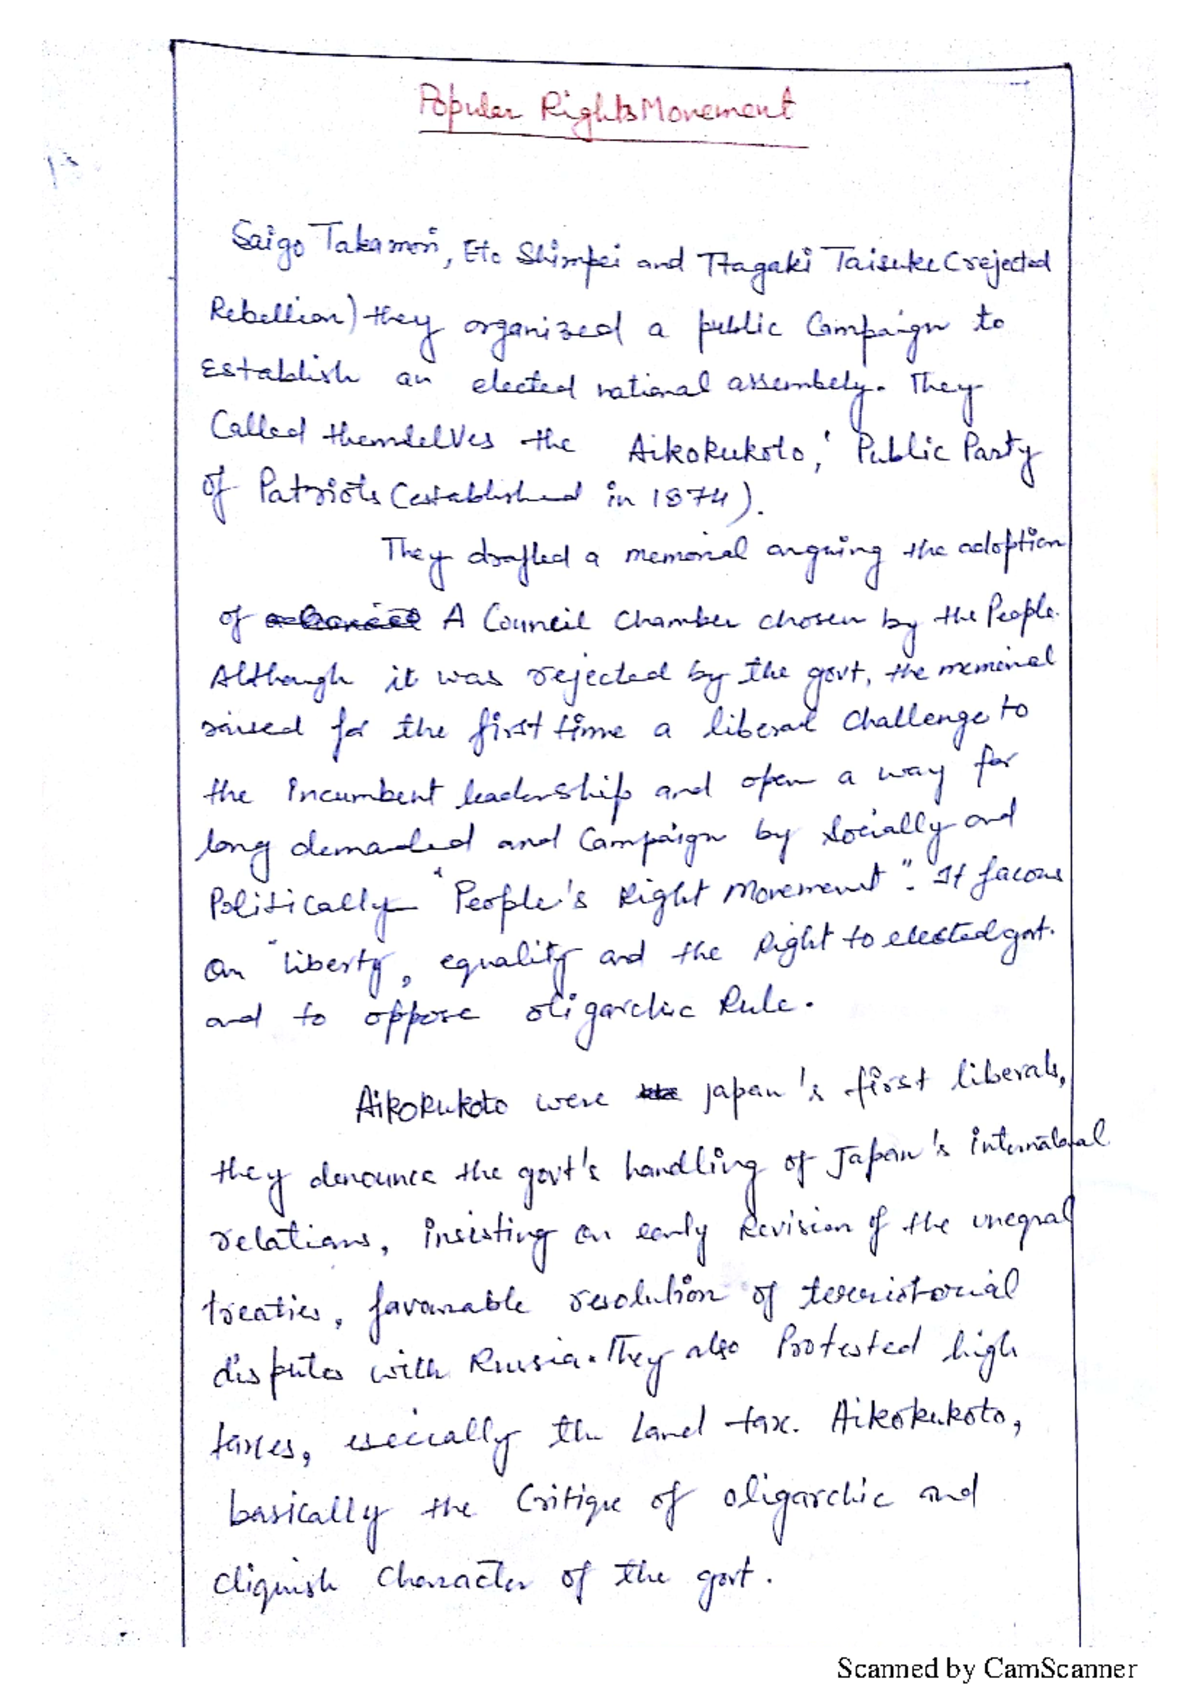 Popular Rights Movement
13
Saigo Takamori, Eto Shimpei and Itagaki Taisuke (rejected
Rebellion) they organized a public Campaign to
Establish an elected national assembely. They
Called themselves the Aikokukoto, 'Public Party
of Patriots (established in 1874).
They drafted a memorial arguing the adoption
of A Council Chamber chosen by the People.
Although it was rejected by the govt, the memorial
raised for the first time a liberal challenge to
the incumbent leadership and open a way for
long demanded and Campaign by Socially and
Politically "People's Right Movement". It facous
on "liberty, equality and the Right to elected govt.
and to oppose oligarchic Rule.
Aikokukoto were japan's first liberals,
they denounce the govt's handling of Japan's international
relations, insisting on early Revision of the unequal
treaties, favourable resolution of terristorial
disputes with Russia. They also Protested high
taxes, esecially the Land tax. Aikokukoto,
basically the Critique of oligarchic and
cliquish character of the govt.
Scanned by CamScanner